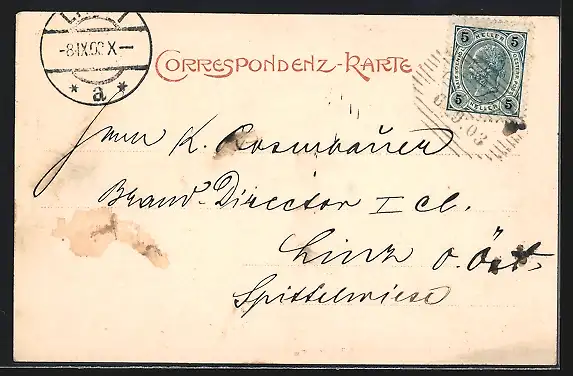 -8.IX.03 X-
* a *
CORRESPONDENZ-KARTE
5 HELLER 5
5 HELLER 5
6.9.03
Herrn K. Rosenbauer
Brand-Director I Cl.
Linz o. Öst.
Spittelwiese